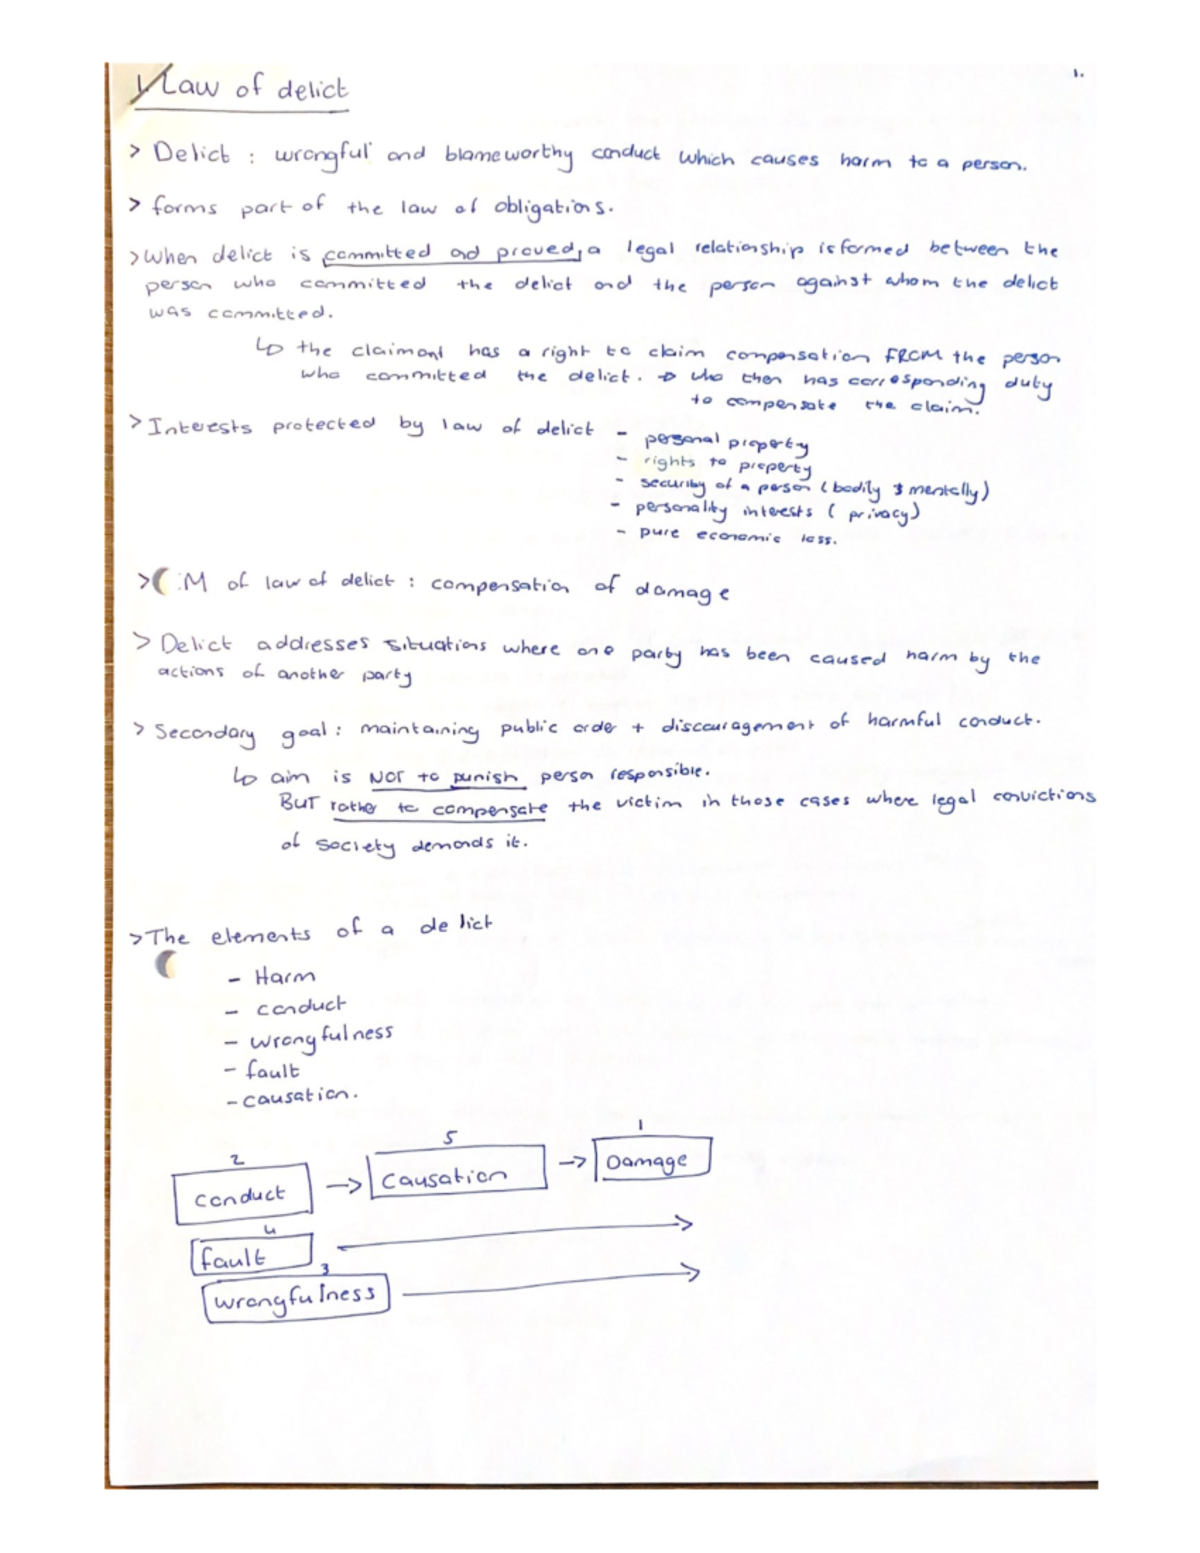 1. Law of delict
1.
> Delict : wrongful and blameworthy conduct which causes harm to a person.
> forms part of the law of obligations.
> When delict is committed and proved, a legal relationship is formed between the
person who committed the delict and the person against whom the delict
was committed.
↳ the claimant has a right to claim compensation FROM the person
who committed the delict. → who then has corresponding duty
to compensate the claim.
> Interests protected by law of delict - personal property
- rights to property
- security of a person (bodily & mentally)
- personality interests ( privacy)
- pure economic loss.
> :M of law of delict : compensation of damage
> Delict addresses situations where one party has been caused harm by the
actions of another party
> Secondary goal : maintaining public order + discouragement of harmful conduct.
↳ aim is NOT to punish person responsible.
BUT rather to compensate the victim in those cases where legal convictions
of society demands it.
> The elements of a delict
- Harm
- conduct
- wrongfulness
- fault
- causation.
2 5 1
conduct → causation → Damage
4
fault
3
wrongfulness